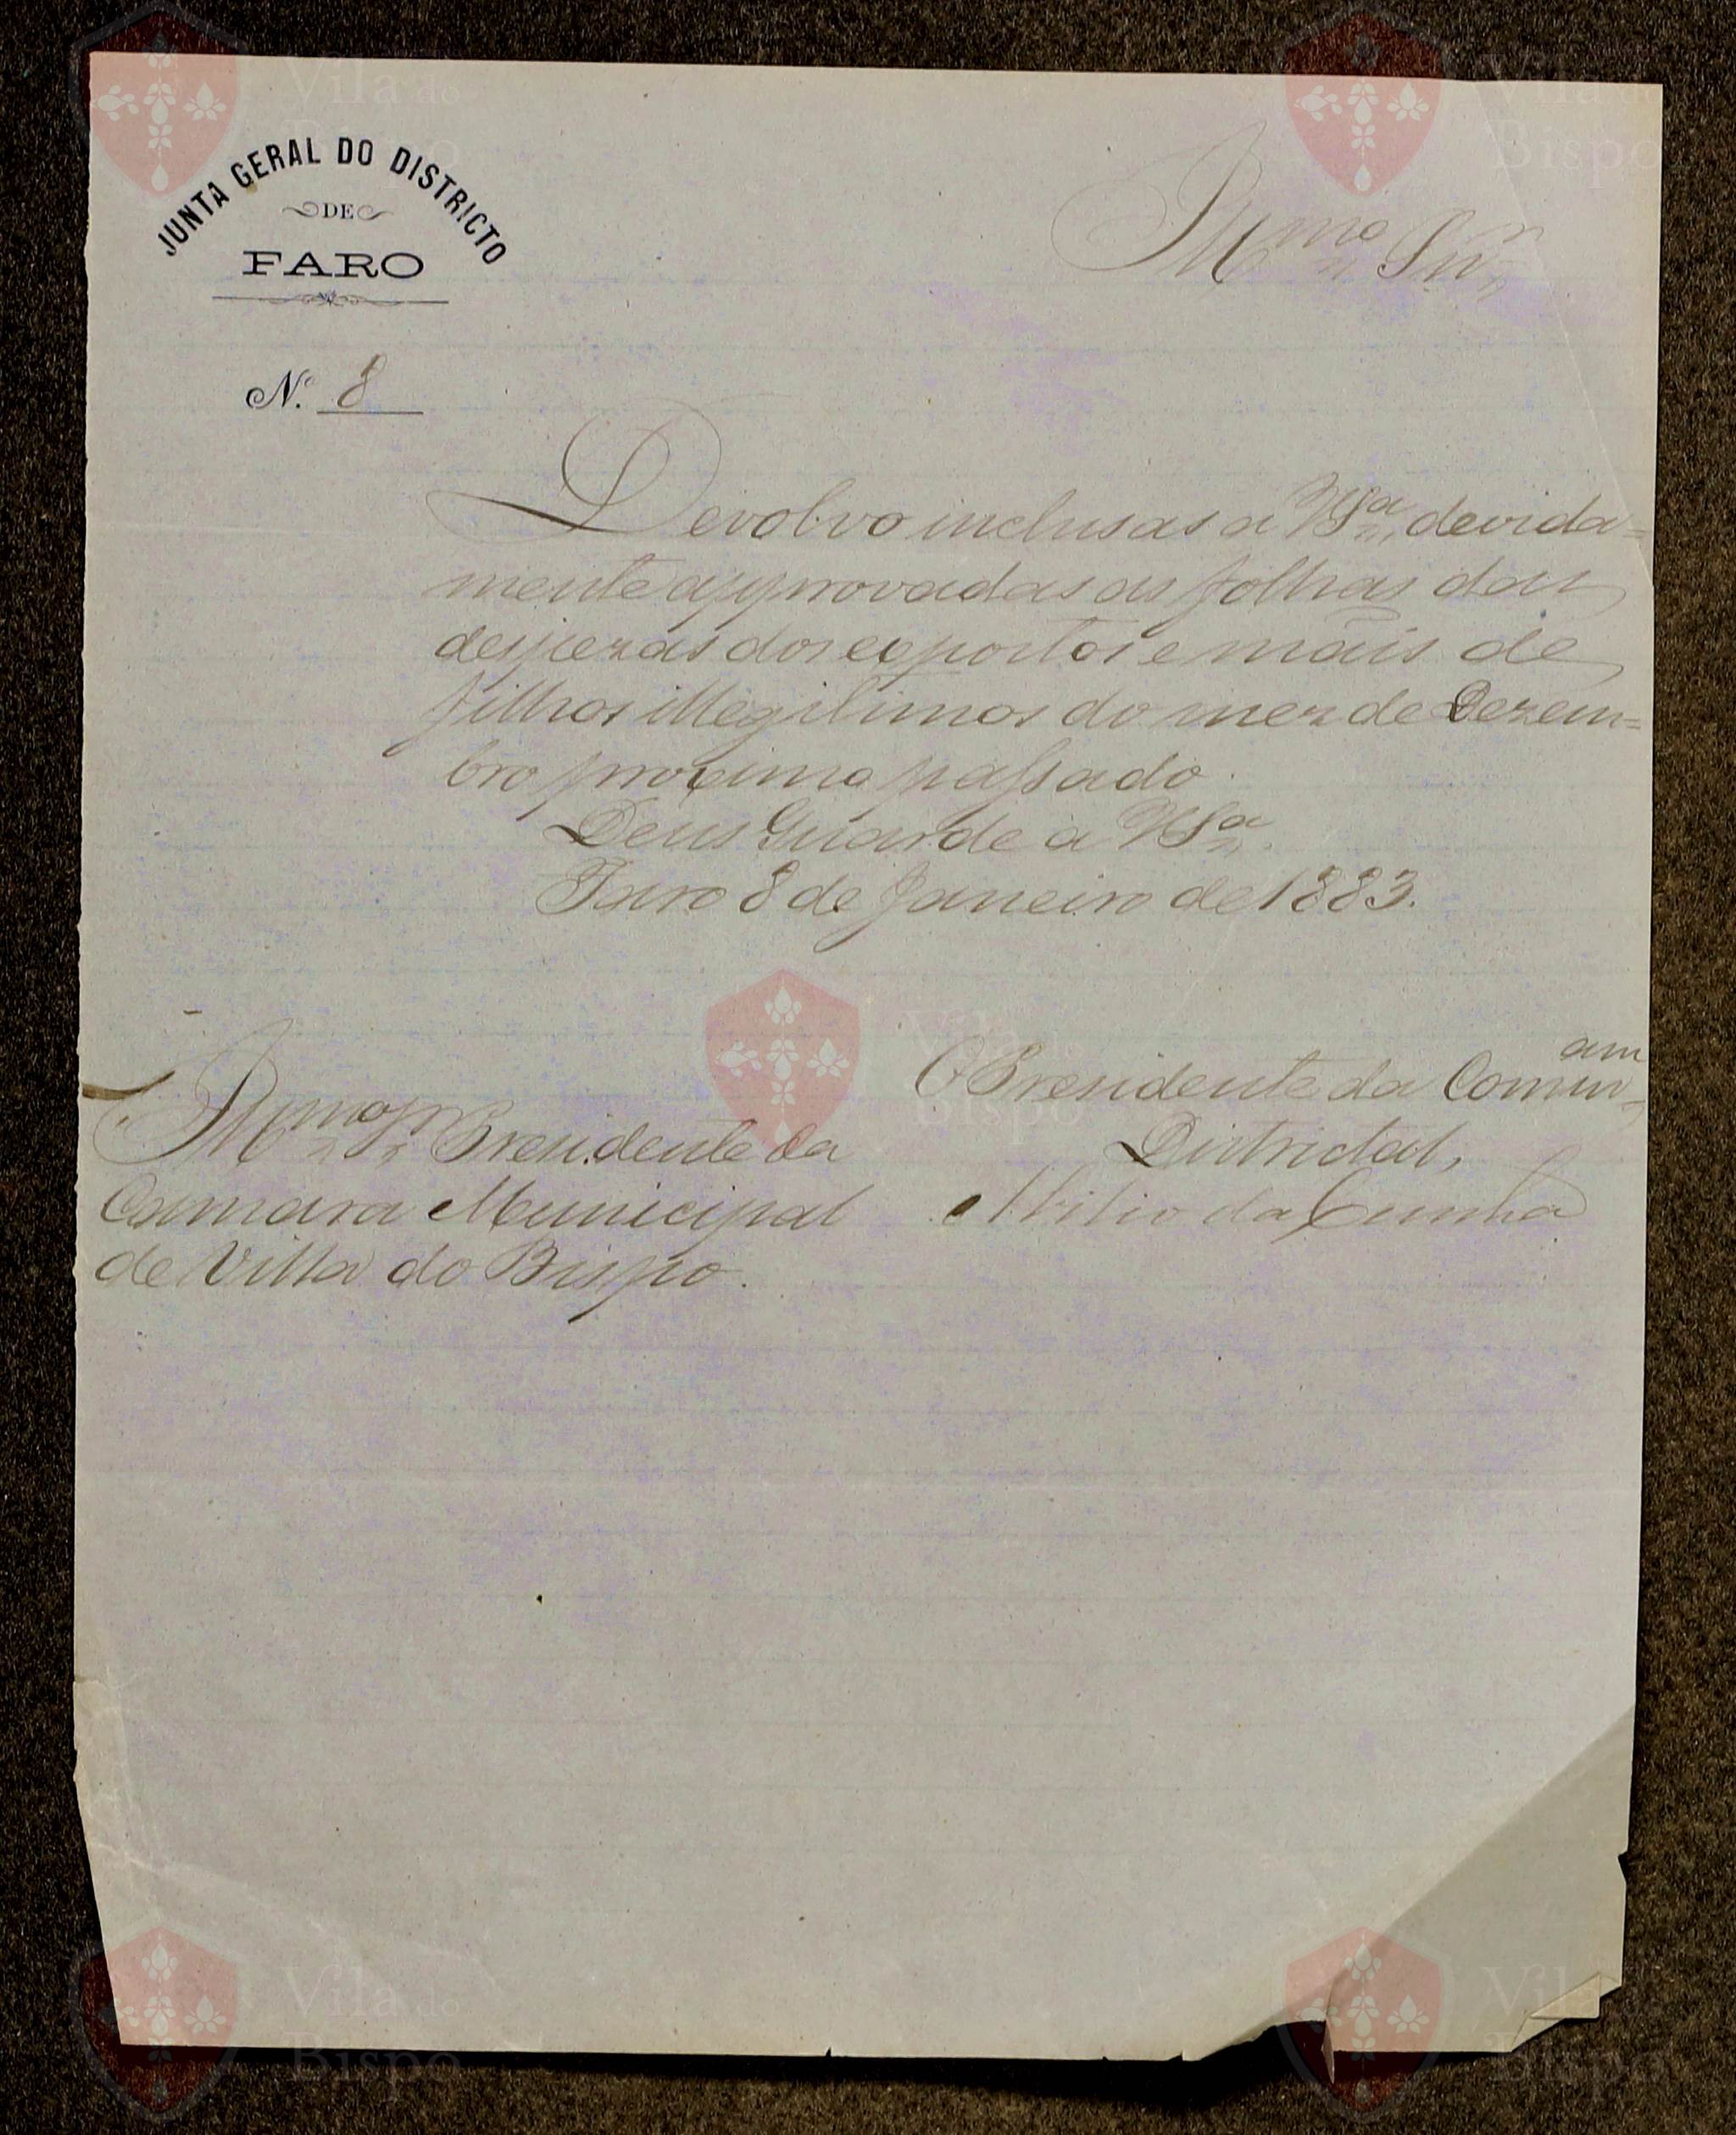 JUNTA GERAL DO DISTRICTO
DE
FARO
N.º 8
Illmo Snr
Devolvo inclusas a VSa, devida=
mente approvadas as folhas das
despezas dos expostos e mães de
filhos illegitimos do mez de Dezem=
bro proximo passado.
Deus Guarde a VSa.
Faro 8 de Janeiro de 1883.
Illmo Sr Presidente da
Camara Municipal
de Villa do Bispo.
O Presidente da Commam
Districtal,
Abilio da Cunha
Vila do
Bispo
Vila do
Bispo
Vila do
Bispo
Vila do
Bispo
Vila
Bispo